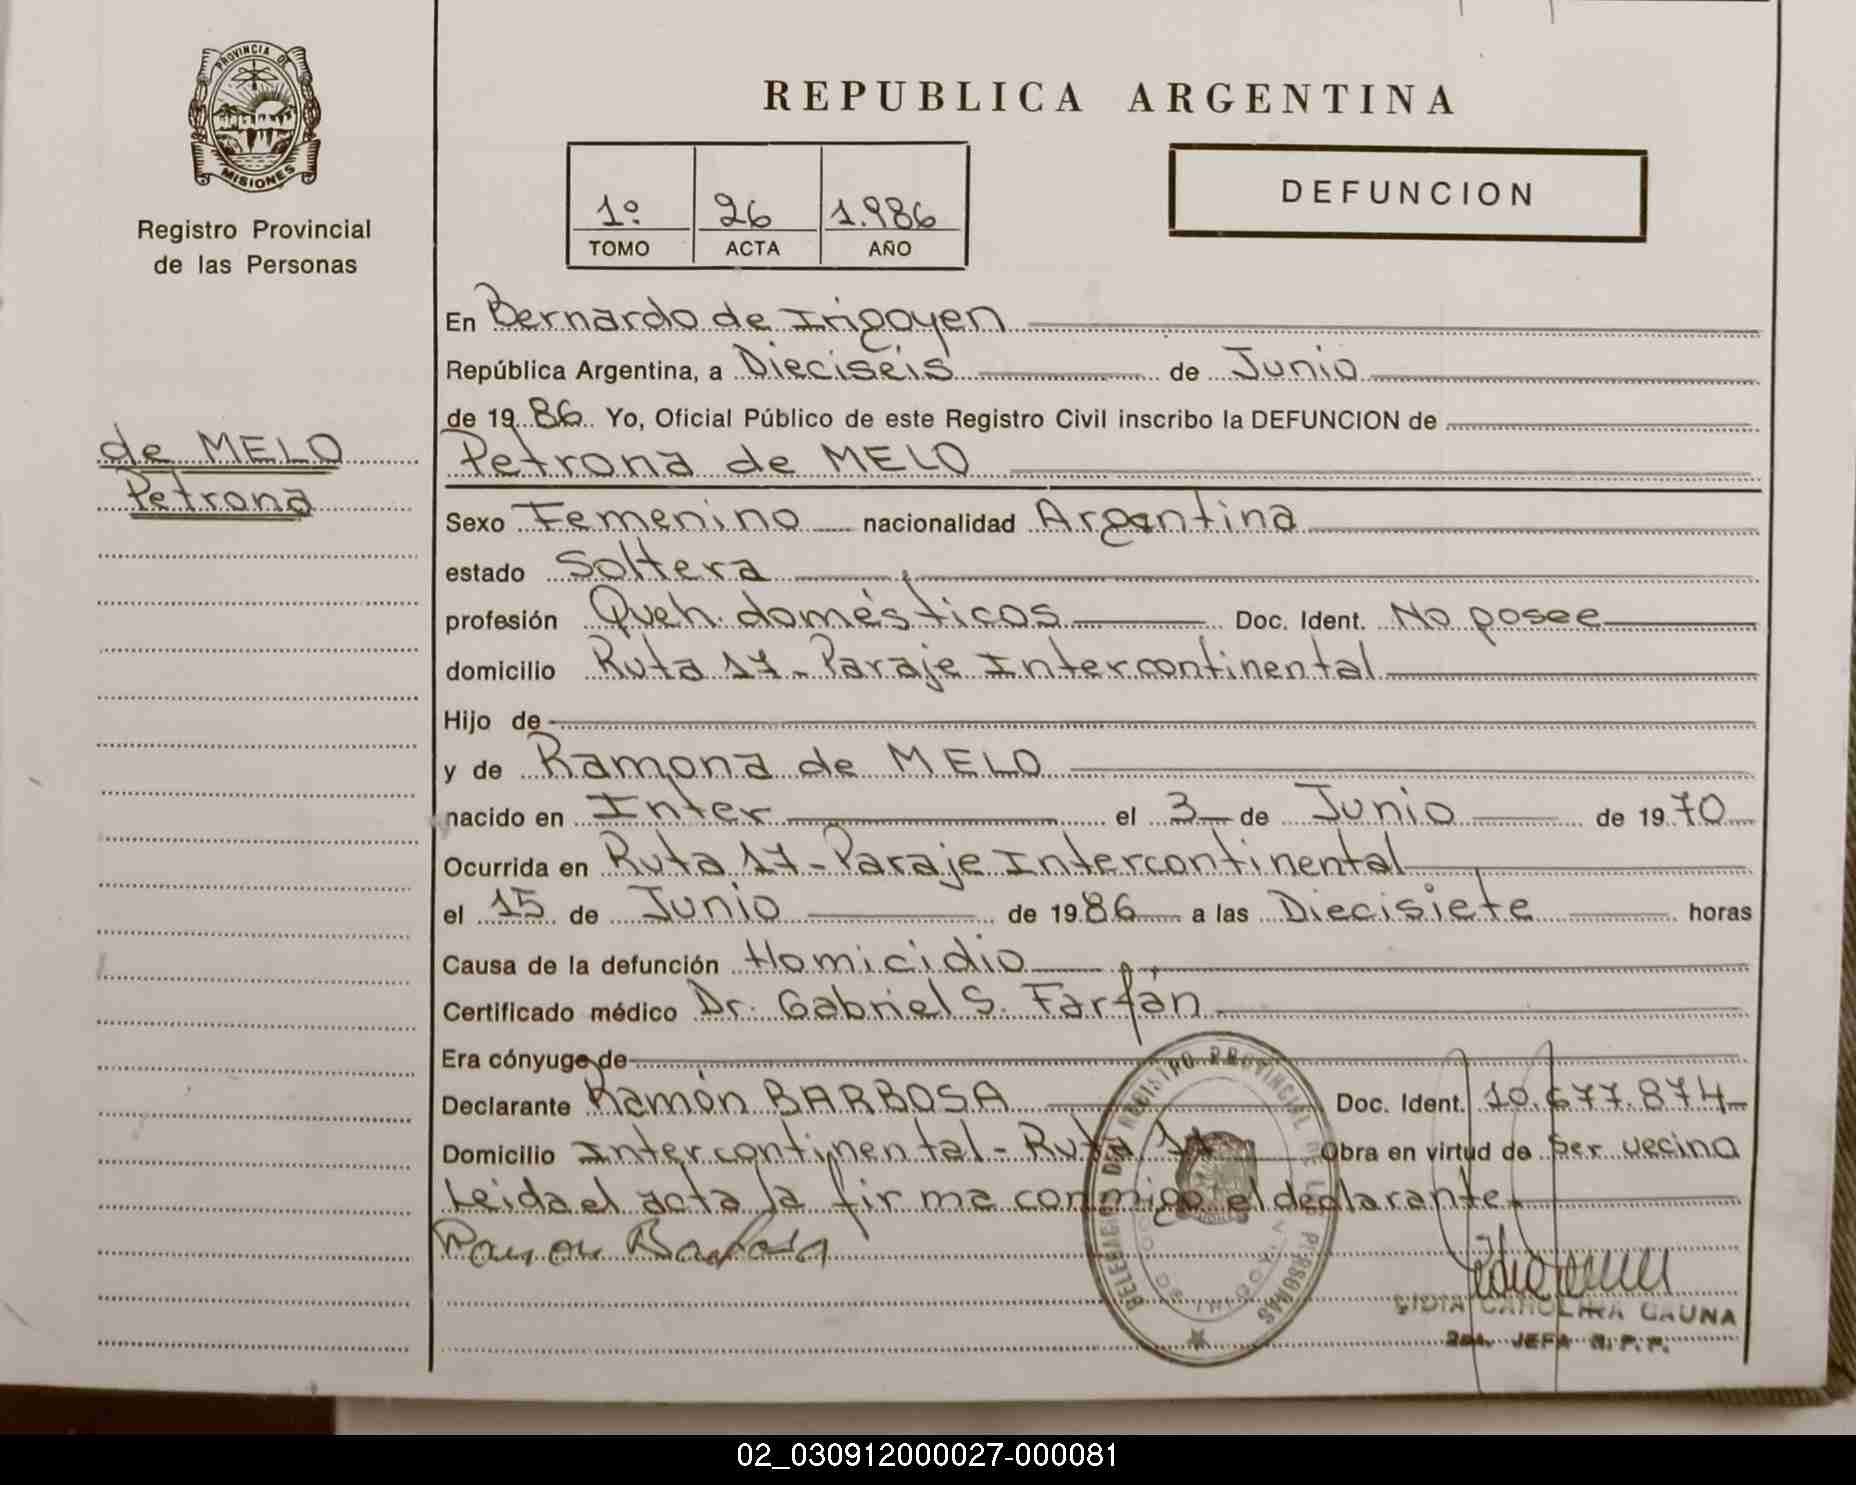 PROVINCIA DE
MISIONES
Registro Provincial
de las Personas
REPUBLICA ARGENTINA
DEFUNCION
1º 26 1.986
TOMO ACTA AÑO
En Bernardo de Irigoyen
República Argentina, a Dieciseis de Junio
de 19 86 Yo, Oficial Público de este Registro Civil inscribo la DEFUNCION de
de MELO
Petrona
Petrona de MELO
Sexo Femenino nacionalidad Argentina
estado Soltera
profesión Queh. domésticos Doc. Ident. No posee
domicilio Ruta 17 - Paraje Intercontinental
Hijo de
y de Ramona de MELO
nacido en Inter el 3 de Junio de 19 70
Ocurrida en Ruta 17 - Paraje Intercontinental
el 15 de Junio de 19 86 a las Diecisiete horas
Causa de la defunción Homicidio
Certificado médico Dr. Gabriel S. Farfán
Era cónyuge de
Declarante Ramón BARBOSA Doc. Ident. 10.677.874
Domicilio Intercontinental - Ruta 17 Obra en virtud de Ser vecino
Leida el acta la firma conmigo el declarante.
Ramon Barbosa
DELEGACION DEL REGISTRO PROVINCIAL DE LAS PERSONAS
CAROLINA GAUNA
JEFA R.P.P.
02_030912000027-000081